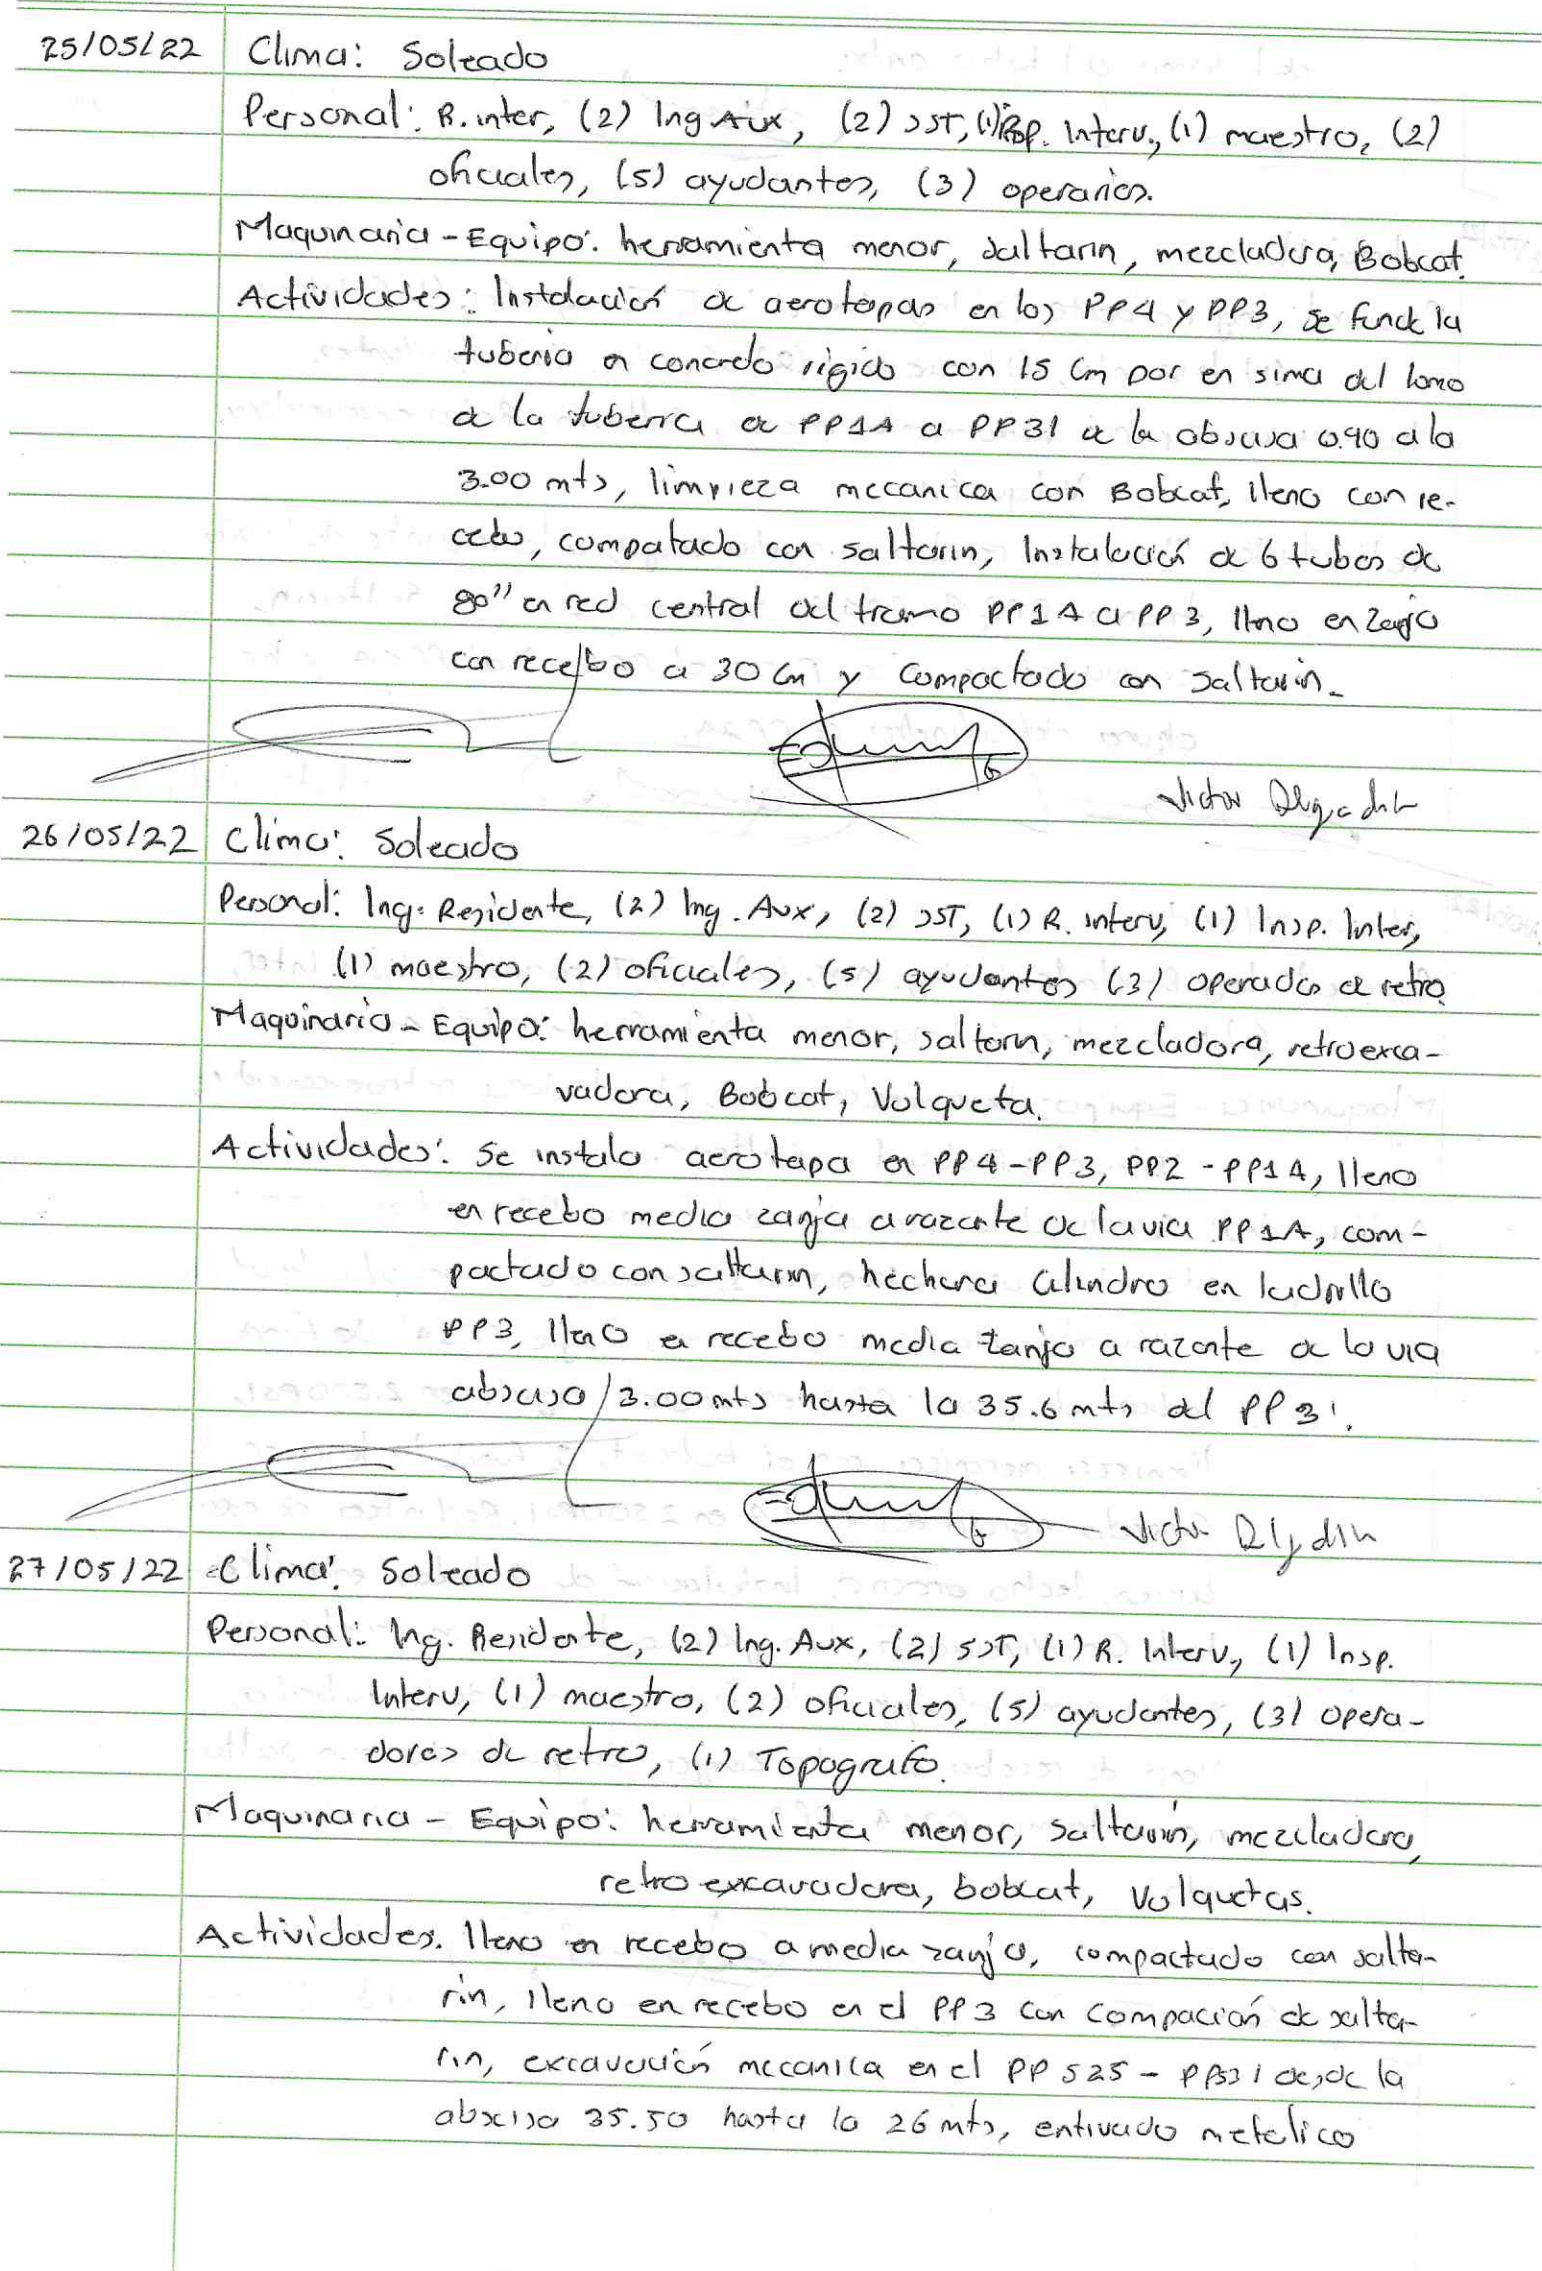 25/05/22 Clima: Soleado
Personal: R. inter, (2) Ing Aux, (2) SST, (1) Insp. Interv., (1) maestro, (2)
oficiales, (5) ayudantes, (3) operarios.
Maquinaria - Equipo: herramienta menor, saltarin, mezcladora, Bobcat.
Actividades: Instalación de aerotapas en los PP4 y PP3, se funde la
tuberia en concreto rigido con 15 cm por en sima del lomo
de la tuberia de PP1A a PP31 de la abscisa 0.90 a la
3.00 mts, limpieza mecanica con Bobcat, lleno con re-
cebo, compatado con saltarin, Instalación de 6 tubos de
en red central del tramo PP1A a PP3, lleno en zanja
con recebo a 30 cm y compactado con saltarin.
Victor
26/05/22 Clima: Soleado
Personal: Ing. Residente, (2) Ing. Aux, (2) SST, (1) R. interv, (1) Insp. Inter,
(1) maestro, (2) oficiales, (5) ayudantes (3) operados de retro.
Maquinaria - Equipo: herramienta menor, saltarin, mezcladora, retroexca-
vadora, Bobcat, Volqueta.
Actividades: Se instala aerotapa en PP4-PP3, PP2 - PP1A, lleno
en recebo media zanja a razante de la via PP1A, com-
pactado con saltarin, hechura cilindro en ladrillo
PP3, lleno en recebo media zanja a razante de la via
abscisa 3.00 mts hasta la 35.6 mts del PP
Victor
27/05/22 Clima: Soleado
Personal: Ing. Residente, (2) Ing. Aux, (2) SST, (1) R. Interv, (1) Insp.
Interv, (1) maestro, (2) oficiales, (5) ayudantes, (3) opera-
dores de retro, (1) Topografo.
Maquinaria - Equipo: herramienta menor, saltarin, mezcladora,
retroexcavadora, bobcat, Volquetas.
Actividades. lleno en recebo a media zanja, compactado con salta-
rin, lleno en recebo en el PP3 con compación de salta-
rin, excavación mecanica en el PP 525 - desde la
abscisa 35.50 hasta la 26 mts, entivado metalico